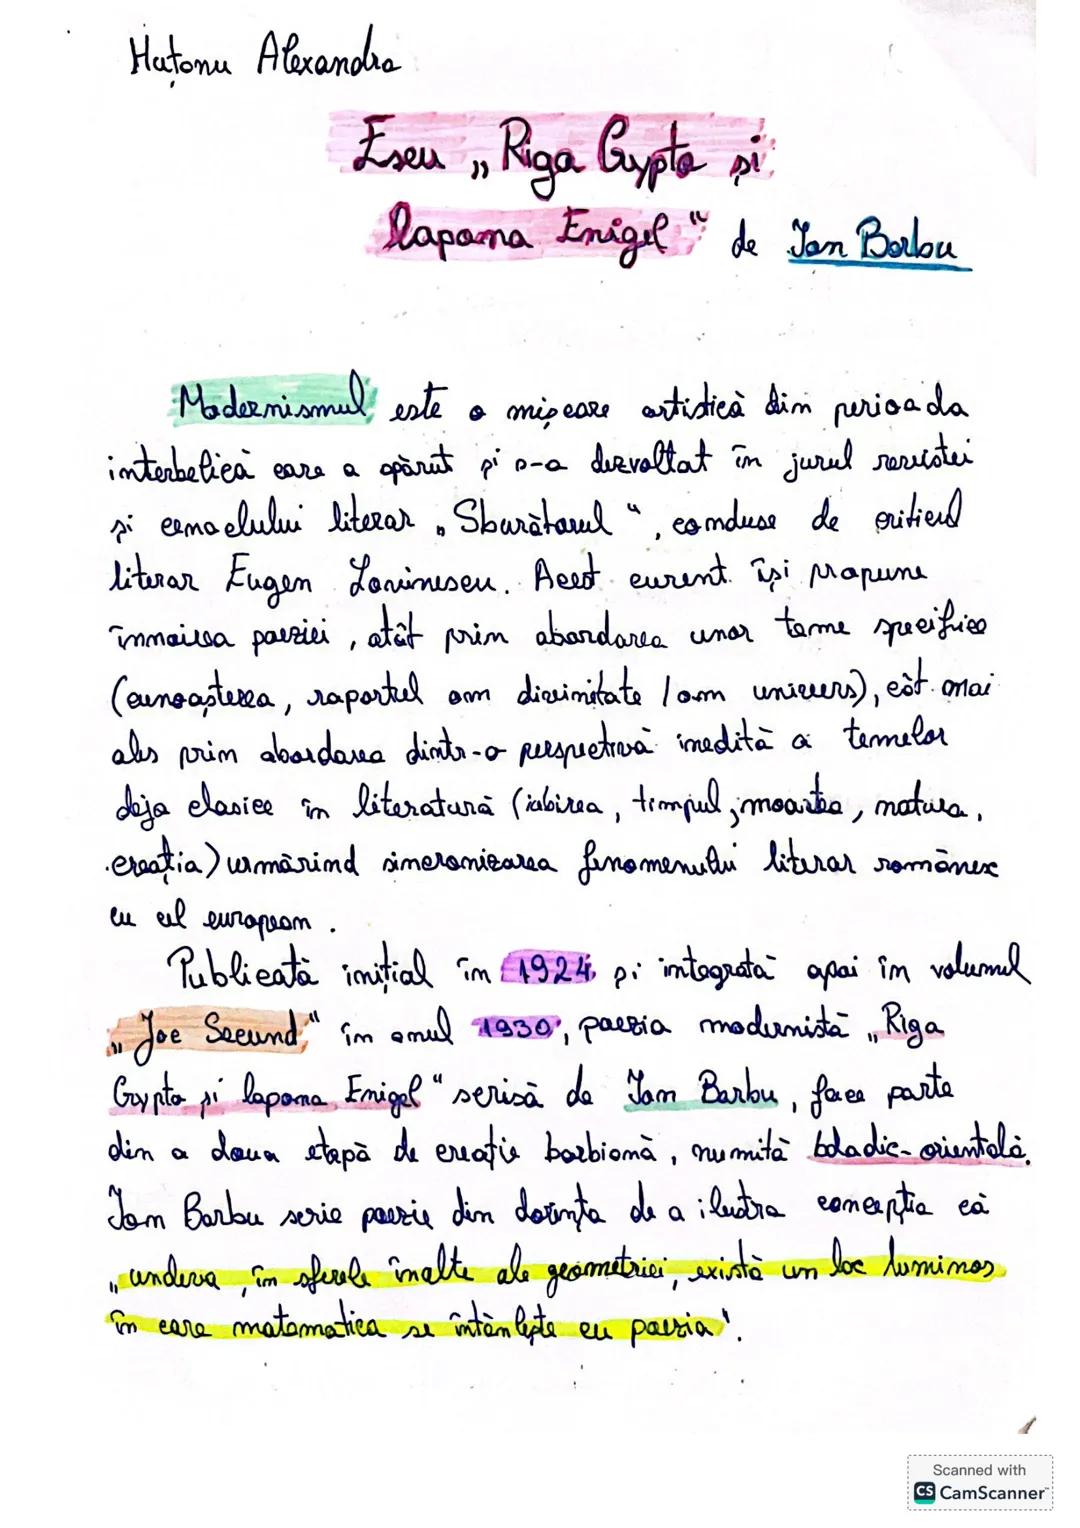 Huțonu Alexandra
Eseu „Riga Crypto și
lapona Enigel" de Ion Barbu
Modernismul este o mișcare artistică din perioada
interbelică care a apărut și s-a dezvoltat în jurul revistei
și cenaclului literar „Sburătorul", conduse de criticul
literar Eugen Lovinescu. Acest curent își propune
înnoirea poeziei, atât prin abordarea unor teme specifice
(cunoașterea, raportul om divinitate / om univers), cât mai
ales prin abordarea dintr-o perspectivă inedită a temelor
deja clasice în literatură (iubirea, timpul, moartea, natura,
creația) urmărind sincronizarea fenomenului literar românesc
cu cel european.
Publicată inițial în 1924 și integrată apoi în volumul
„Joc Secund" în anul 1930, poezia modernistă „Riga
Crypto și lapona Enigel" scrisă de Ion Barbu, face parte
din a doua etapă de creație barbiană, numită baladic-orientală.
Ion Barbu scrie poezie din dorința de a ilustra concepția că
„undeva, în sferele înalte ale geometriei, există un loc luminos
în care matematica se întâlnește cu poezia".
Scanned with
CS CamScanner